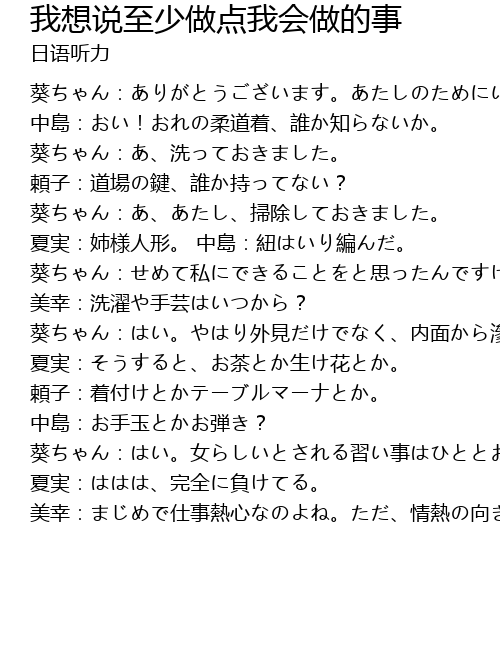 我想说至少做点我会做的事
日语听力
葵ちゃん：ありがとうございます。あたしのためにい
中島：おい！おれの柔道着、誰か知らないか。
葵ちゃん：あ、洗っておきました。
頼子：道場の鍵、誰か持ってない？
葵ちゃん：あ、あたし、掃除しておきました。
夏実：姉様人形。 中島：紐はいり編んだ。
葵ちゃん：せめて私にできることをと思ったんですけ
美幸：洗濯や手芸はいつから？
葵ちゃん：はい。やはり外見だけでなく、内面から滲
夏実：そうすると、お茶とか生け花とか。
頼子：着付けとかテーブルマーナとか。
中島：お手玉とかお弾き？
葵ちゃん：はい。女らしいとされる習い事はひととお
夏実：ははは、完全に負けてる。
美幸：まじめで仕事熱心なのよね。ただ、情熱の向き